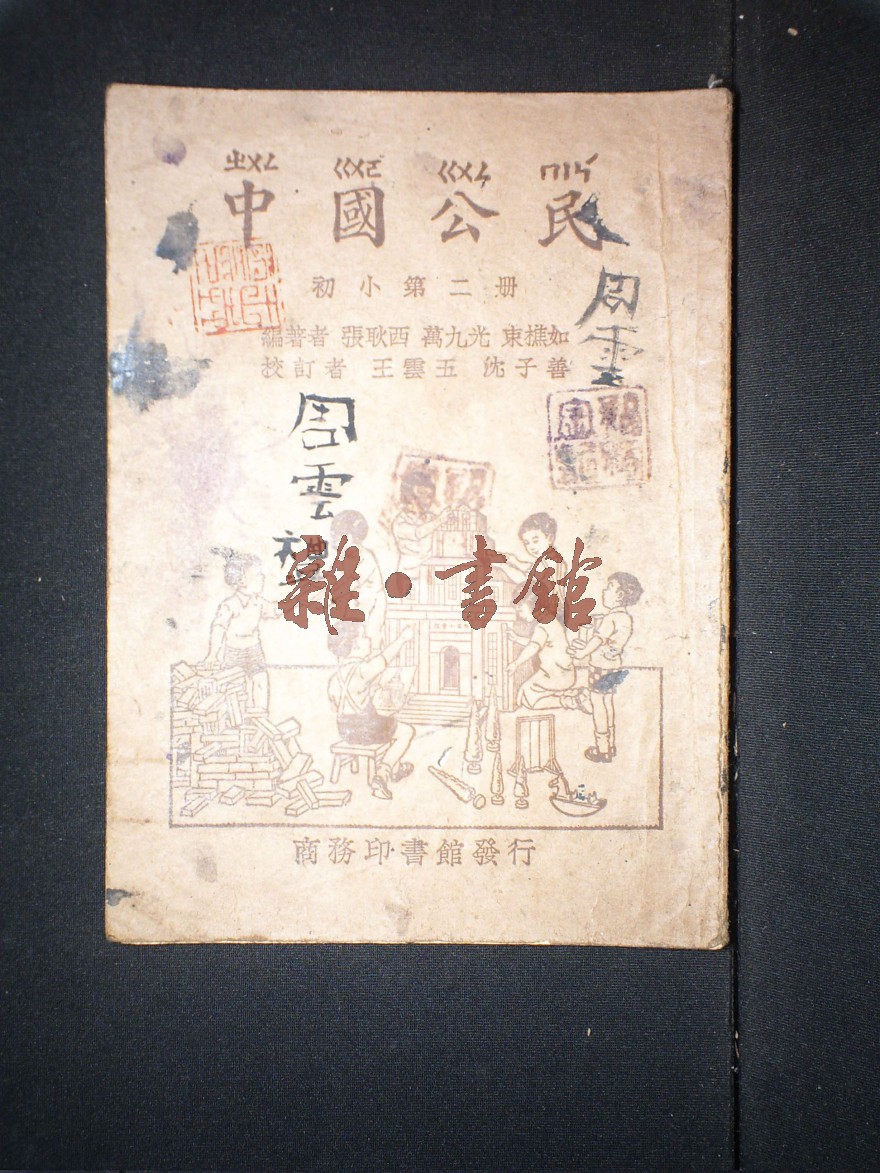 ㄓㄨㄥ ㄍㄨㄛ ㄍㄨㄥ ㄇㄧㄣ
中國公民
初小第二册
編著者 張耿西 萬九光 束樵如
校訂者 王雲五 沈子善
周雲
周雲
雜·書館
商務印書館發行